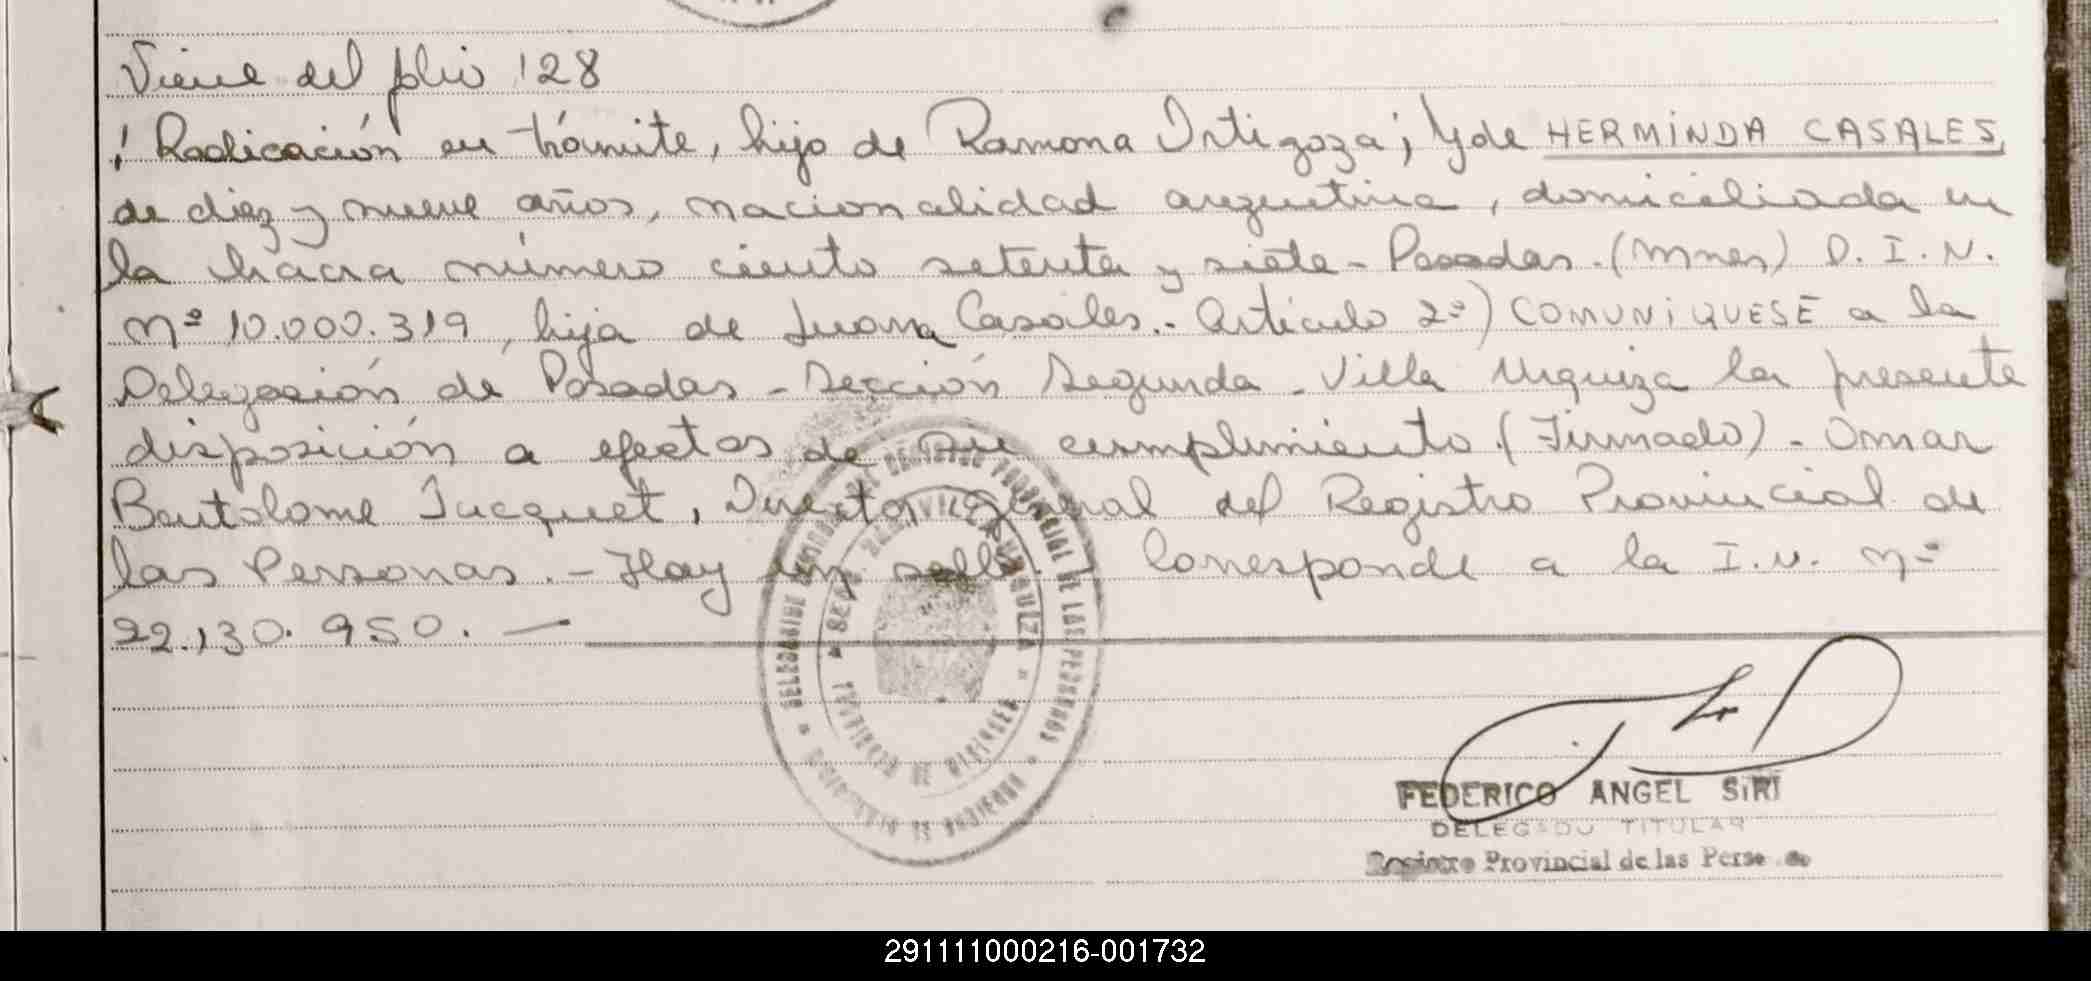 Viene del folio 128
! Radicación en trámite, hijo de Ramona Ortigoza; y de HERMINDA CASALES,
de diez y nueve años, nacionalidad argentina, domiciliada en
la chacra número ciento setenta y siete - Posadas. (Mnes) D. I. N.
Nº 10.000.319, hija de Juana Casales.- Artículo 2º) COMUNIQUESE a la
Delegación de Posadas - Sección Segunda - Villa Urquiza la presente
disposición a efectos de su cumplimiento. (Firmado) - Omar
Bartolome Jacquet, Director General del Registro Provincial de
las Personas. - Hay un sello. Corresponde a la I.N. Nº
22.130.950. —
REGISTRO PROVINCIAL DE LAS PERSONAS
VILLA URQUIZA
FEDERICO ANGEL SiRI
DELEGADO TITULAR
Registro Provincial de las
291111000216-001732